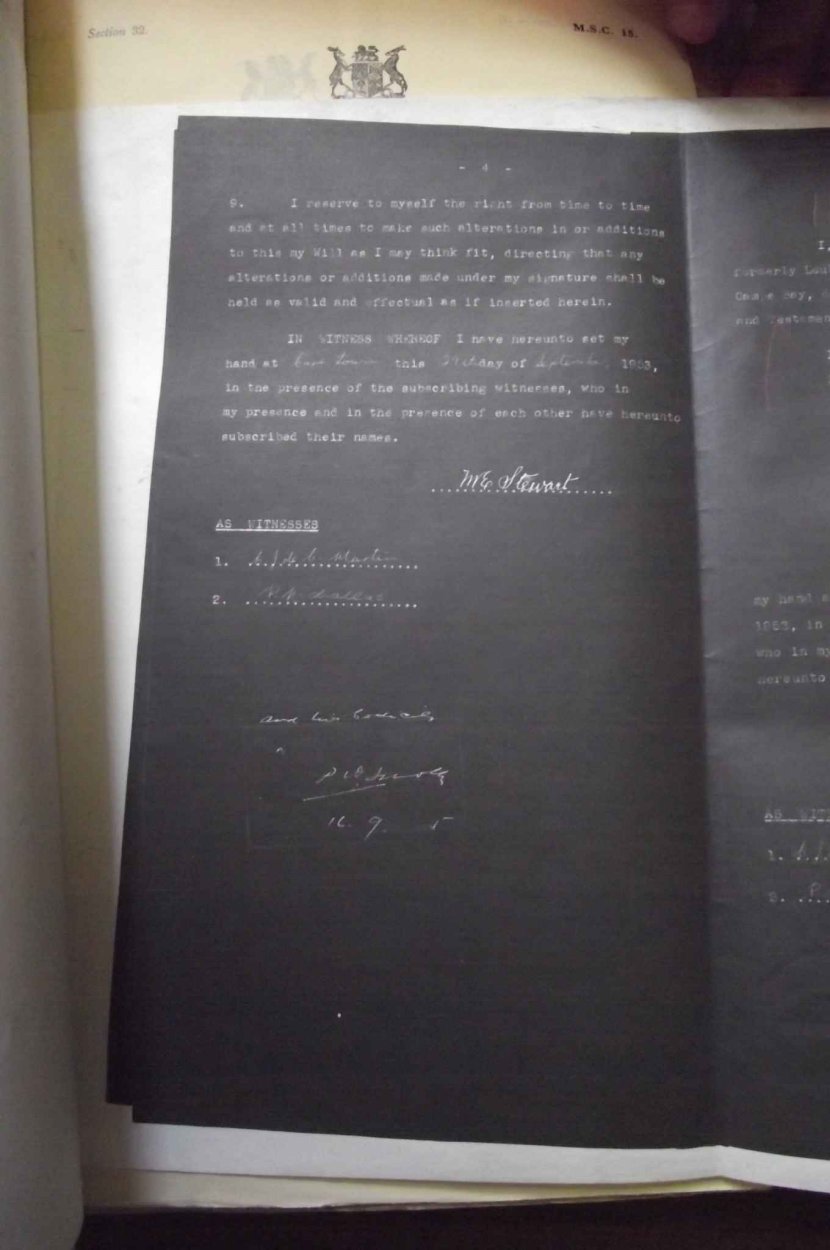 Section 32.
M.S.C. 18.
- 4 -
9. I reserve to myself the right from time to time
and at all times to make such alterations in or additions
to this my Will as I may think fit, directing that any
alterations or additions made under my signature shall be
held as valid and effectual as if inserted herein.
IN WITNESS WHEREOF I have hereunto set my
hand at Cape Town this day of September, 1953,
in the presence of the subscribing witnesses, who in
my presence and in the presence of each other have hereunto
subscribed their names.
Stewart
AS WITNESSES
1. Martin
2.
and
16. 9. 5
I,
formerly
and
my hand
1953, in
who in my
hereunto
AS
1.
P.